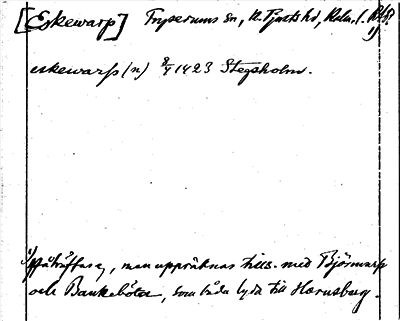 [Eskewarp] Tryserums sn, N. Tjusts hd, Kalm. l.
1)
eskewarp (n) 8/4 1423 Stegsholm.
1) påträffas ej, men uppräknas tills. med Björnwarp
och Bankeböta, som båda lyda till Hornsberg.